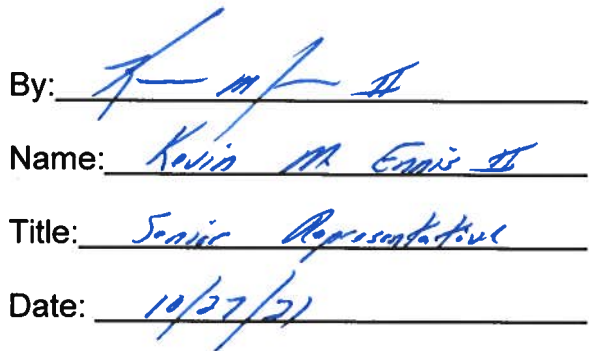 By: K M II
Name: Kevin M. Ennis II
Title: Senior Representative
Date: 10/27/21